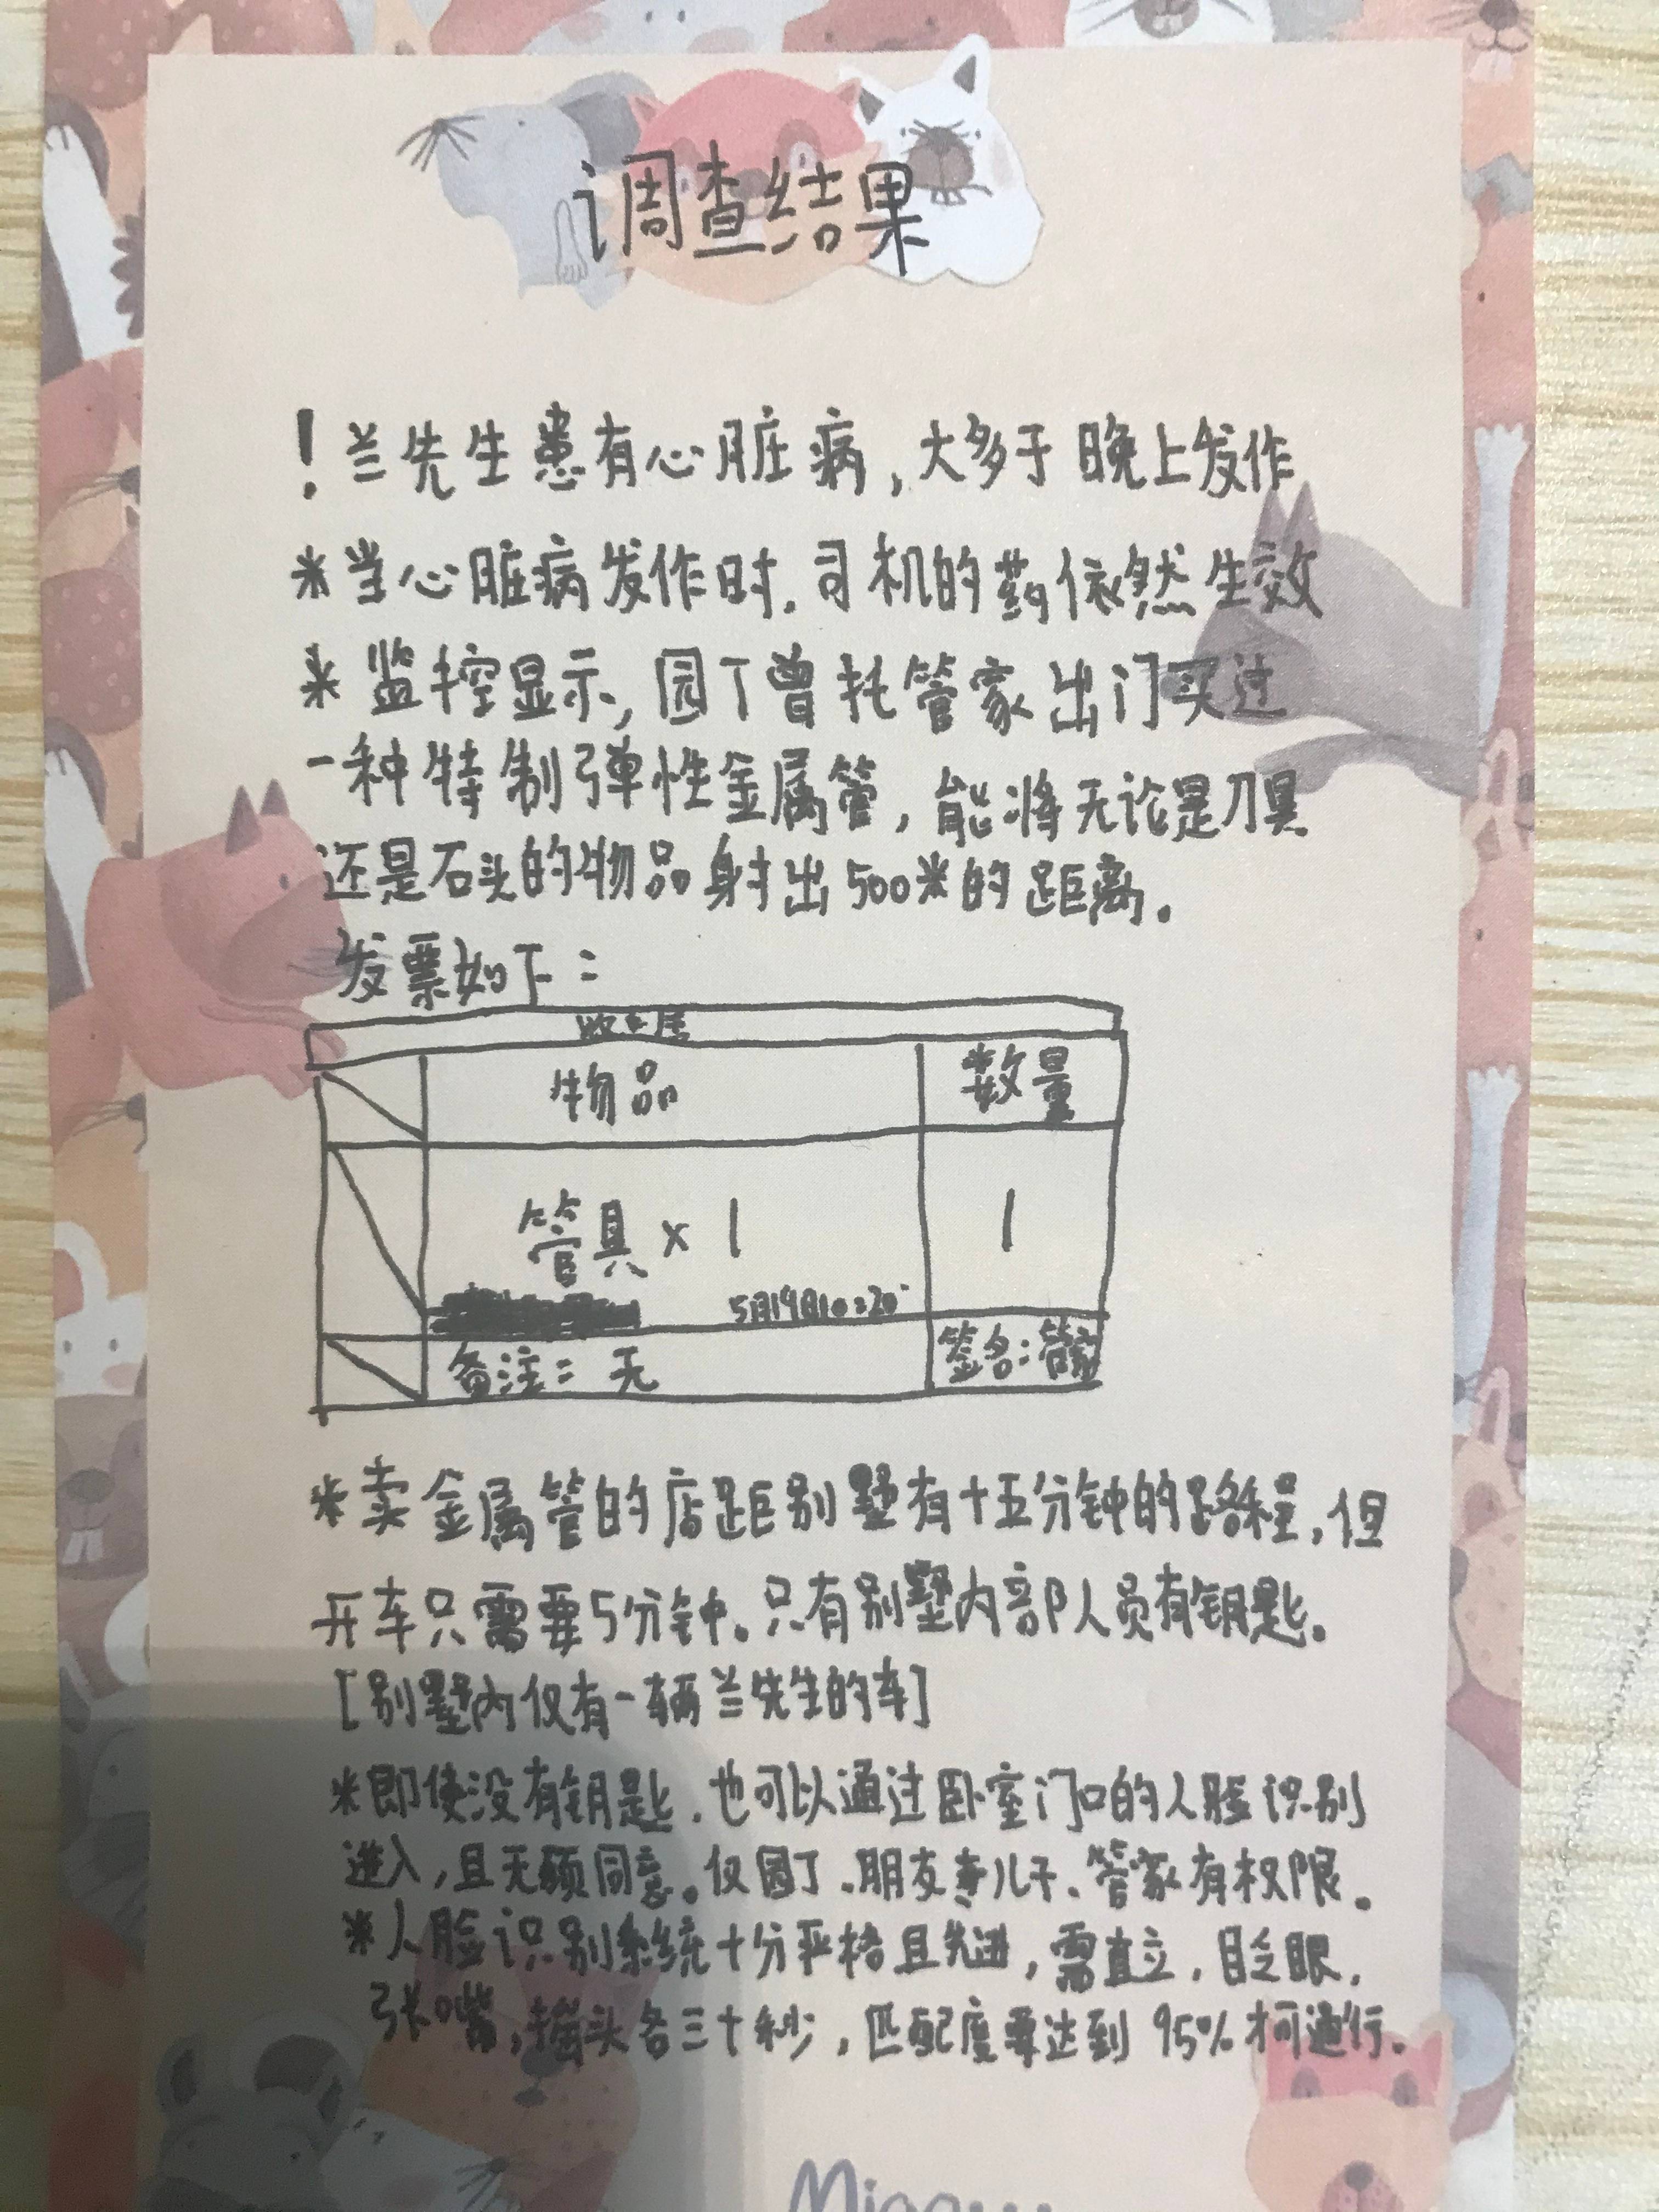 调查结果
！兰先生患有心脏病，大多于晚上发作
*当心脏病发作时，司机的药依然生效
*监控显示，园丁曾托管家出门买过
一种特制弹性金属管，能将无论是刀具
还是石头的物品射出500米的距离。
发票如下：
物品 数量
管具×1 1
5月19日10:20
备注：无 签名：管家
*卖金属管的店距别墅有十五分钟的路程，但
开车只需要5分钟。只有别墅内部人员有钥匙。
[别墅内仅有一辆兰先生的车]
*即使没有钥匙，也可以通过卧室门口的人脸识别
进入，且无须同意。仅园丁、朋友、妻儿子、管家有权限。
*人脸识别系统十分严格且先进，需直立，眨眼，
张嘴，摇头各三十秒，匹配度要达到95%才可通行。